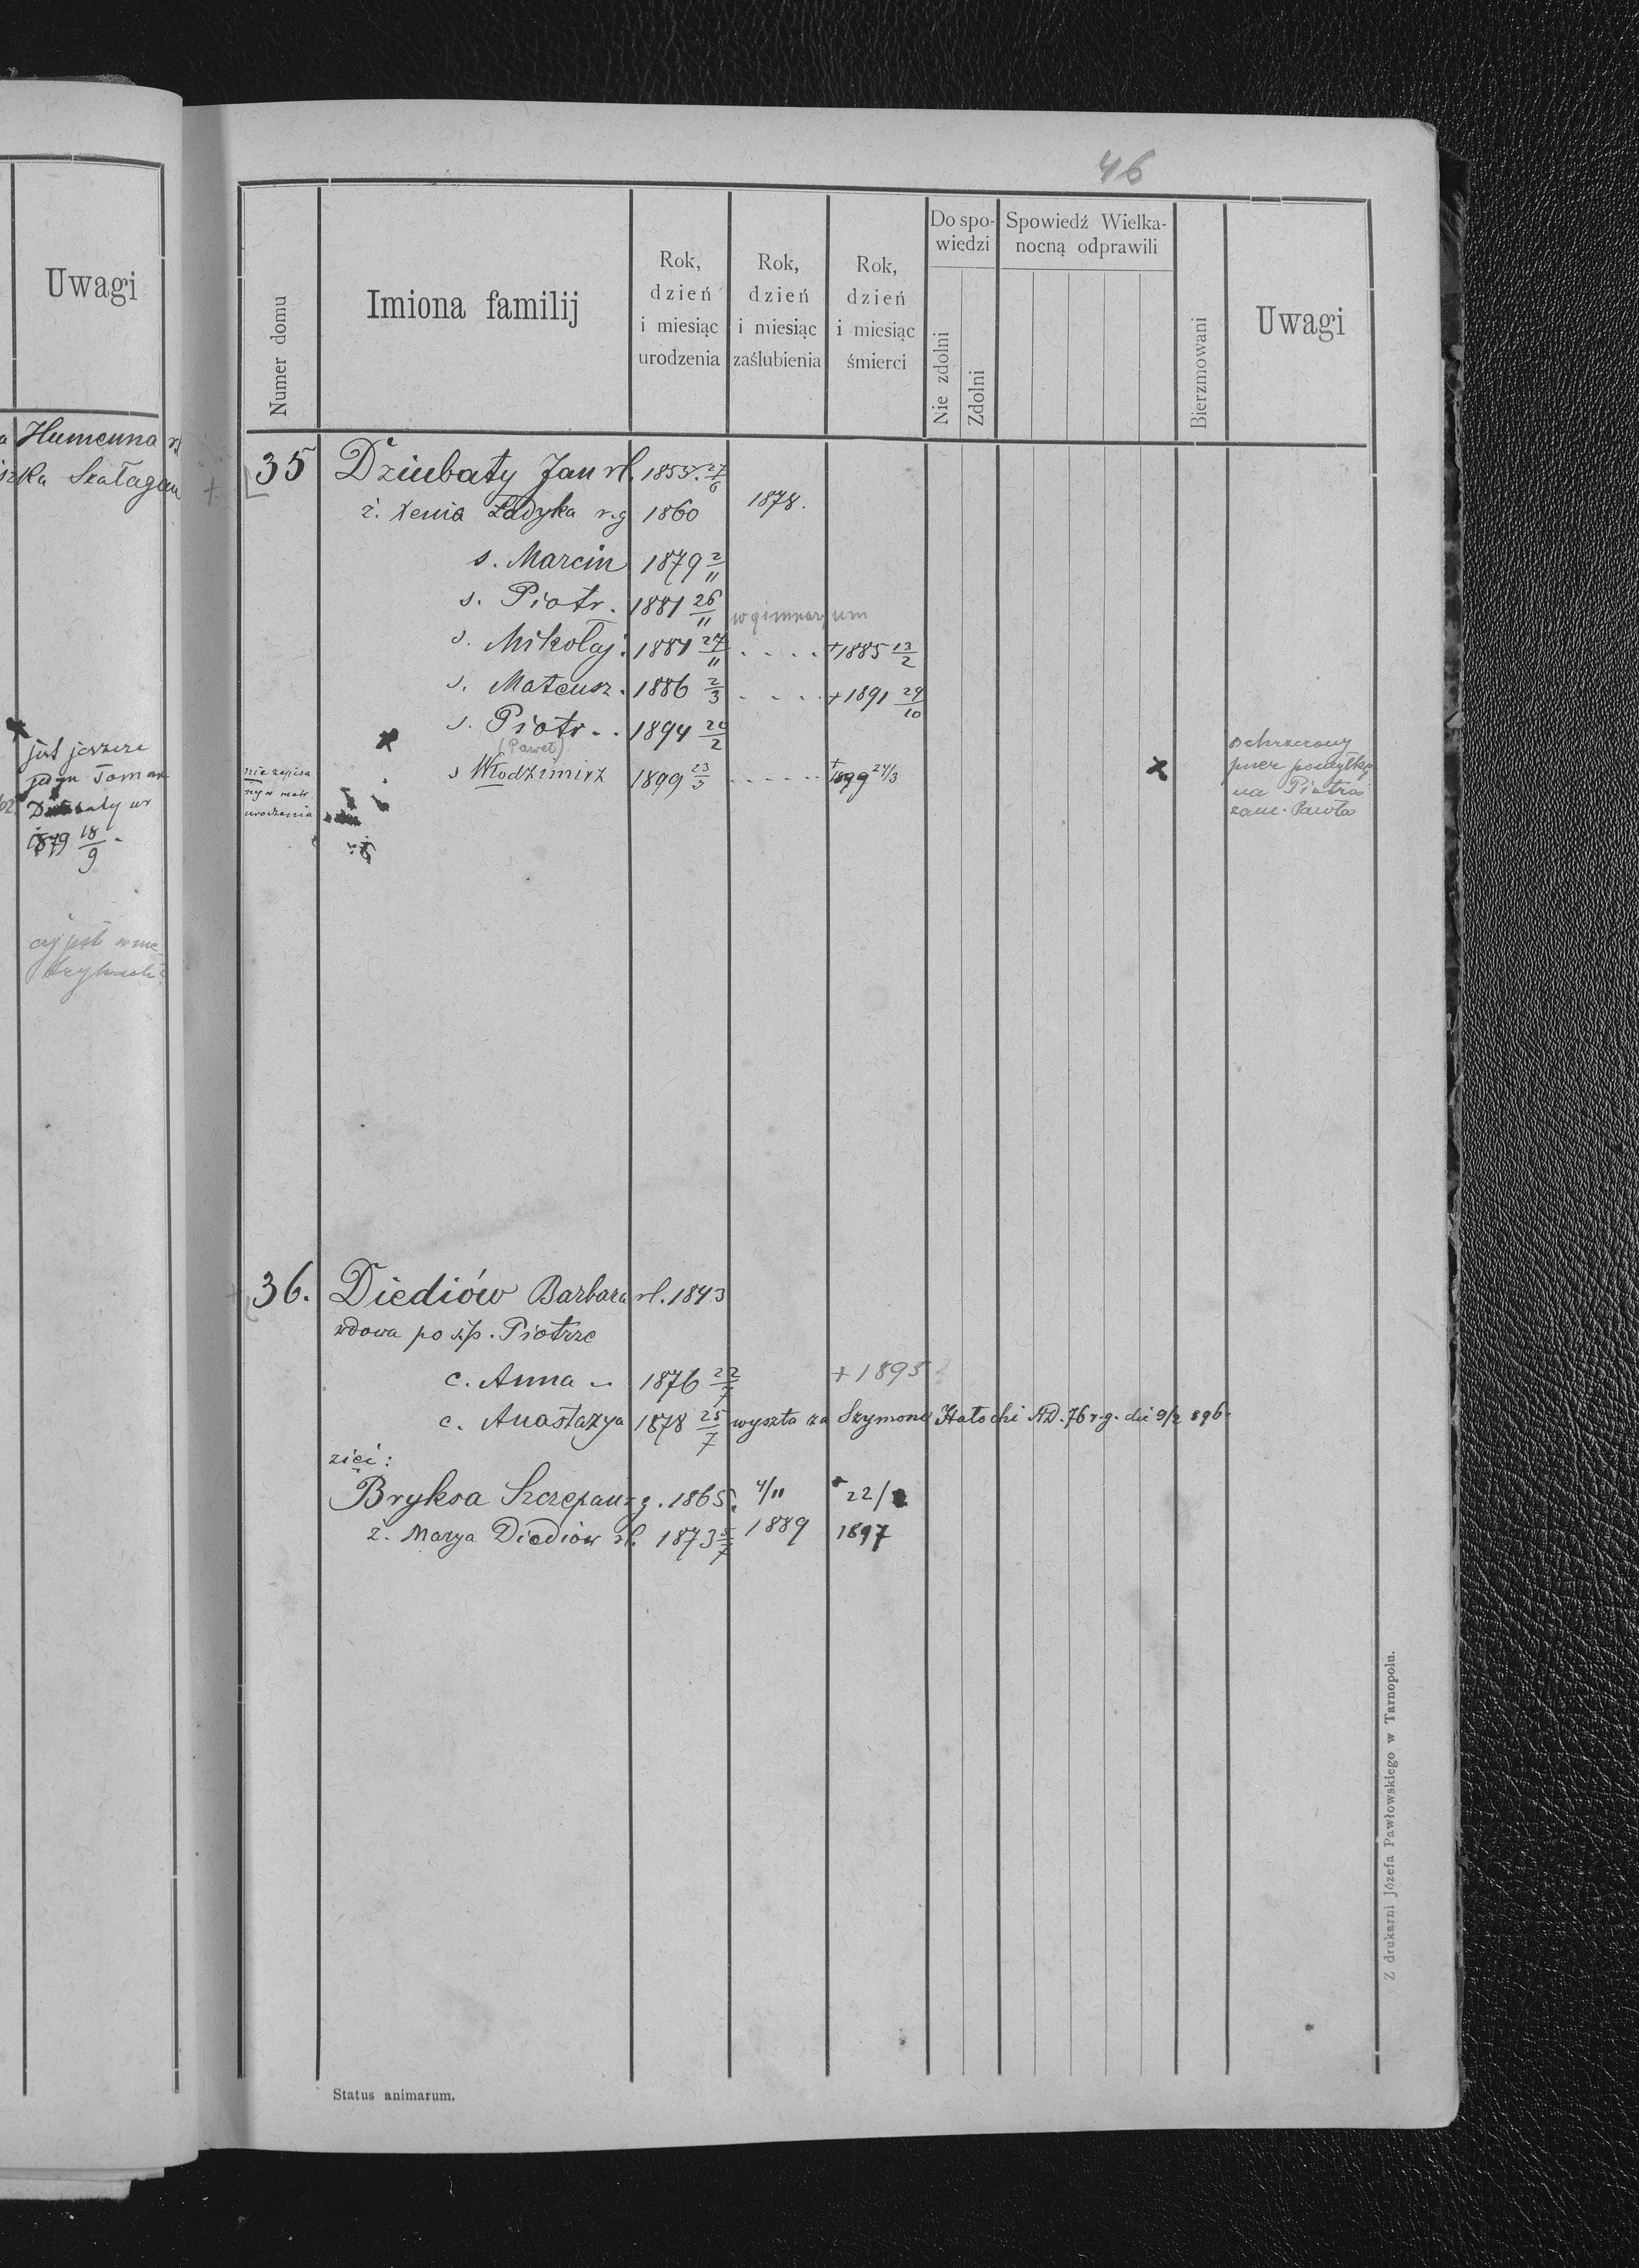 46
Uwagi
Humenna
Skałagan
jest jeszcze
jedyn Tomasz
1879 18/9
czy jest w me
trykach?
Numer domu
Imiona familij
Rok, dzień i miesiąc urodzenia
Rok, dzień i miesiąc zaślubienia
Rok, dzień i miesiąc śmierci
Do spowiedzi
Nie zdolni
Zdolni
Spowiedź Wielkanocną odprawili
Bierzmowani
Uwagi
35 Dziubaty Jan rł. 1853. 27/6
ż. Xenia Ładyka r.g 1860 1878.
s. Marcin 1879 2/11
s. Piotr. 1881 26/11 w gimnazyum
s. Mikołaj. 1881 27/11 . . . . +1885 13/2
s. Mateusz. 1886 2/3 . . . . +1891 29/10
s. Piotr . . 1894 20/2
(Paweł)
s Włodzimirz 1899 23/3 . . . . . +1899 24/3
nie zapisa
ny w metr.
urodzenia
ochrzczony
przez pomyłkę
na Piotra
zam. Pawła
36. Diediów Barbara rł. 1843
wdowa po ś.p. Piotrze
c. Anna .. 1876 22/7 + 1895
c. Anastazya 1878 25/7 wyszła za Szymona Hałochi ND. 76 r.g. die 9/2 896.
zięć:
Bryksa Szczepan r.g. 1865. 4/11 + 22/2
ż. Marya Diediów rł. 1873 5/7 1889 1897
Status animarum.
Z drukarni Józefa Pawłowskiego w Tarnopolu.